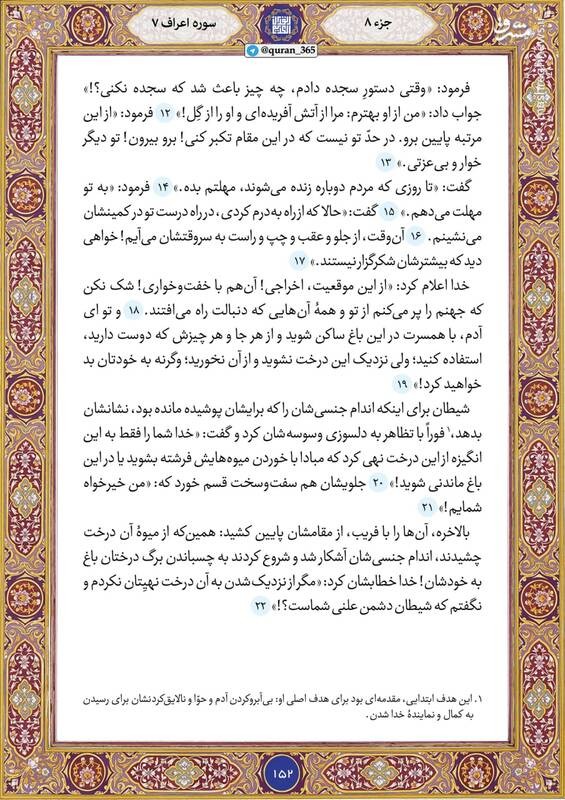 جزء ۸
سوره اعراف ۷
@quran_365
مشرق
فرمود: «وقتی دستورِ سجده دادم، چه چیز باعث شد که سجده نکنی؟!»
جواب داد: «من از او بهترم: مرا از آتش آفریده‌ای و او را از گِل!» ۱۲ فرمود: «از این
مرتبه پایین برو. در حدّ تو نیست که در این مقام تکبر کنی! برو بیرون! تو دیگر
خوار و بی‌عزتی.» ۱۳
گفت: «تا روزی که مردم دوباره زنده می‌شوند، مهلتم بده.» ۱۴ فرمود: «به تو
مهلت می‌دهم.» ۱۵ گفت: «حالا که از راه به‌درم کردی، در راه درست تو در کمینشان
می‌نشینم. ۱۶ آن‌وقت، از جلو و عقب و چپ و راست به سروقتشان می‌آیم! خواهی
دید که بیشترشان شکرگزار نیستند.» ۱۷
خدا اعلام کرد: «از این موقعیت، اخراجی! آن‌هم با خفت‌وخواری! شک نکن
که جهنم را پر می‌کنم از تو و همهٔ آن‌هایی که دنبالت راه می‌افتند. ۱۸ و تو ای
آدم، با همسرت در این باغ ساکن شوید و از هر جا و هر چیزش که دوست دارید،
استفاده کنید؛ ولی نزدیک این درخت نشوید و از آن نخورید؛ وگرنه به خودتان بد
خواهید کرد!» ۱۹
شیطان برای اینکه اندام جنسی‌شان را که برایشان پوشیده مانده بود، نشانشان
بدهد،۱ فوراً با تظاهر به دلسوزی وسوسه‌شان کرد و گفت: «خدا شما را فقط به این
انگیزه از این درخت نهی کرد که مبادا با خوردن میوه‌هایش فرشته بشوید یا در این
باغ ماندنی شوید!» ۲۰ جلویشان هم سفت‌وسخت قسم خورد که: «من خیرخواه
شمایم!» ۲۱
بالاخره، آن‌ها را با فریب، از مقامشان پایین کشید: همین‌که از میوهٔ آن درخت
چشیدند، اندام جنسی‌شان آشکار شد و شروع کردند به چسباندن برگ درختان باغ
به خودشان! خدا خطابشان کرد: «مگر از نزدیک شدن به آن درخت نهیِتان نکردم و
نگفتم که شیطان دشمن علنی شماست؟!» ۲۲
۱. این هدف ابتدایی، مقدمه‌ای بود برای هدف اصلی او: بی‌آبروکردن آدم و حوّا و نالایق‌کردنشان برای رسیدن
به کمال و نمایندهٔ خدا شدن.
۱۵۲